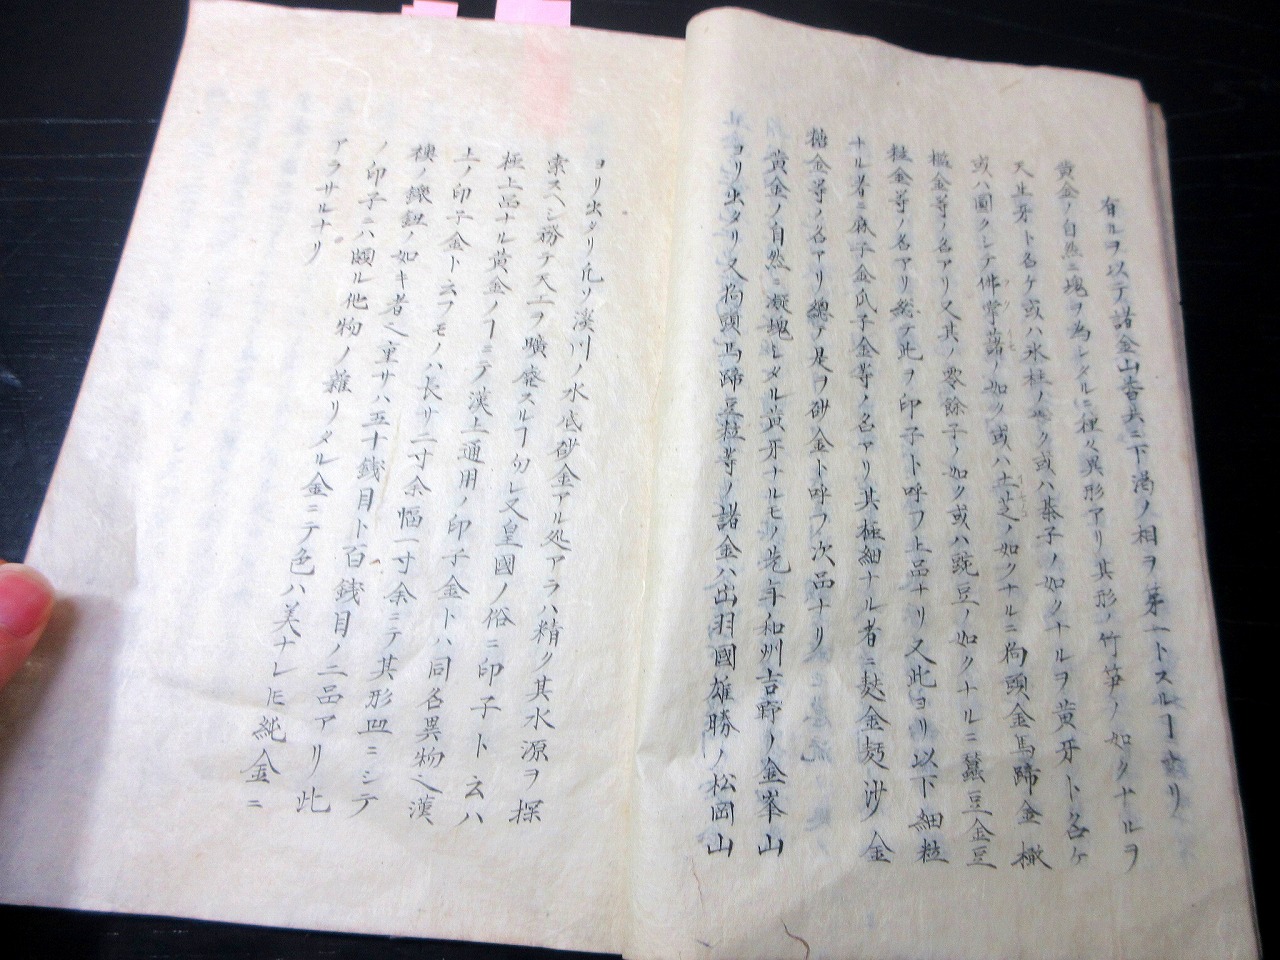 有ルヲ以テ諸金山皆共ニ下濁ノ相ヲ第一トスルヿナリ
黄金ノ自然ニ塊ヲ為シタルニ種々異形アリ其形ノ竹笋ノ如クナルヲ
天止牙ト名ケ或ハ氷柱ノ如ク或ハ棊子ノ如クナルヲ黄牙ト名ケ
或ハ圓クシテ佛掌藷ノ如ク或ハ土芝ノ如クナルニ狗頭金馬蹄金橄
欖金等ノ名アリ又其ノ零餘子ノ如ク或ハ豌豆ノ如クナルニ蠶豆金豆
粒金等ノ名アリ総テ此ヲ印子ト呼フ上品ナリ又此ヨリ以下細粒
ナル者ニ麻子金瓜子金等ノ名アリ其極細ナル者ニ麩金麪沙金
糖金等ノ名アリ總テ是ヲ砂金ト呼フ次品ナリ
黄金ノ自然ニ凝塊シタル黄牙ナルモノ先年和州吉野ノ金峯山
ヨリ出タリ又狗頭馬蹄豆粒等ノ諸金ハ出羽國雄勝ノ松岡山
ヨリ出タリ凡ソ渓川ノ水底砂金アル処アラハ精ク其水源ヲ探
索スヘシ務テ天工ヲ曠廃スルヿ勿レ又皇國ノ俗ニ印子ト云ハ
極上品ナル黄金ノヿニテ漢上通用ノ印子金トハ同名異物也漢
上ノ印子金ト云フモノハ長サ二寸余幅一寸余ニテ其形凹ニシテ
襖ノ鐶鈕ノ如キ者也重サハ五十銭目ト百銭目ノ二品アリ此
ノ印子ニハ頗ル他物ノ雜リタル金ニテ色ハ美ナレ𪜈純金ニ
アラサルナリ